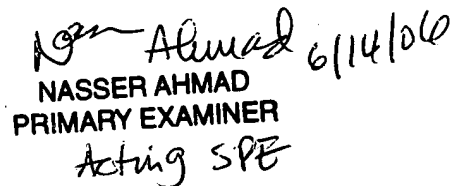 Nasser Ahmad 6/14/06
NASSER AHMAD
PRIMARY EXAMINER
Acting SPE